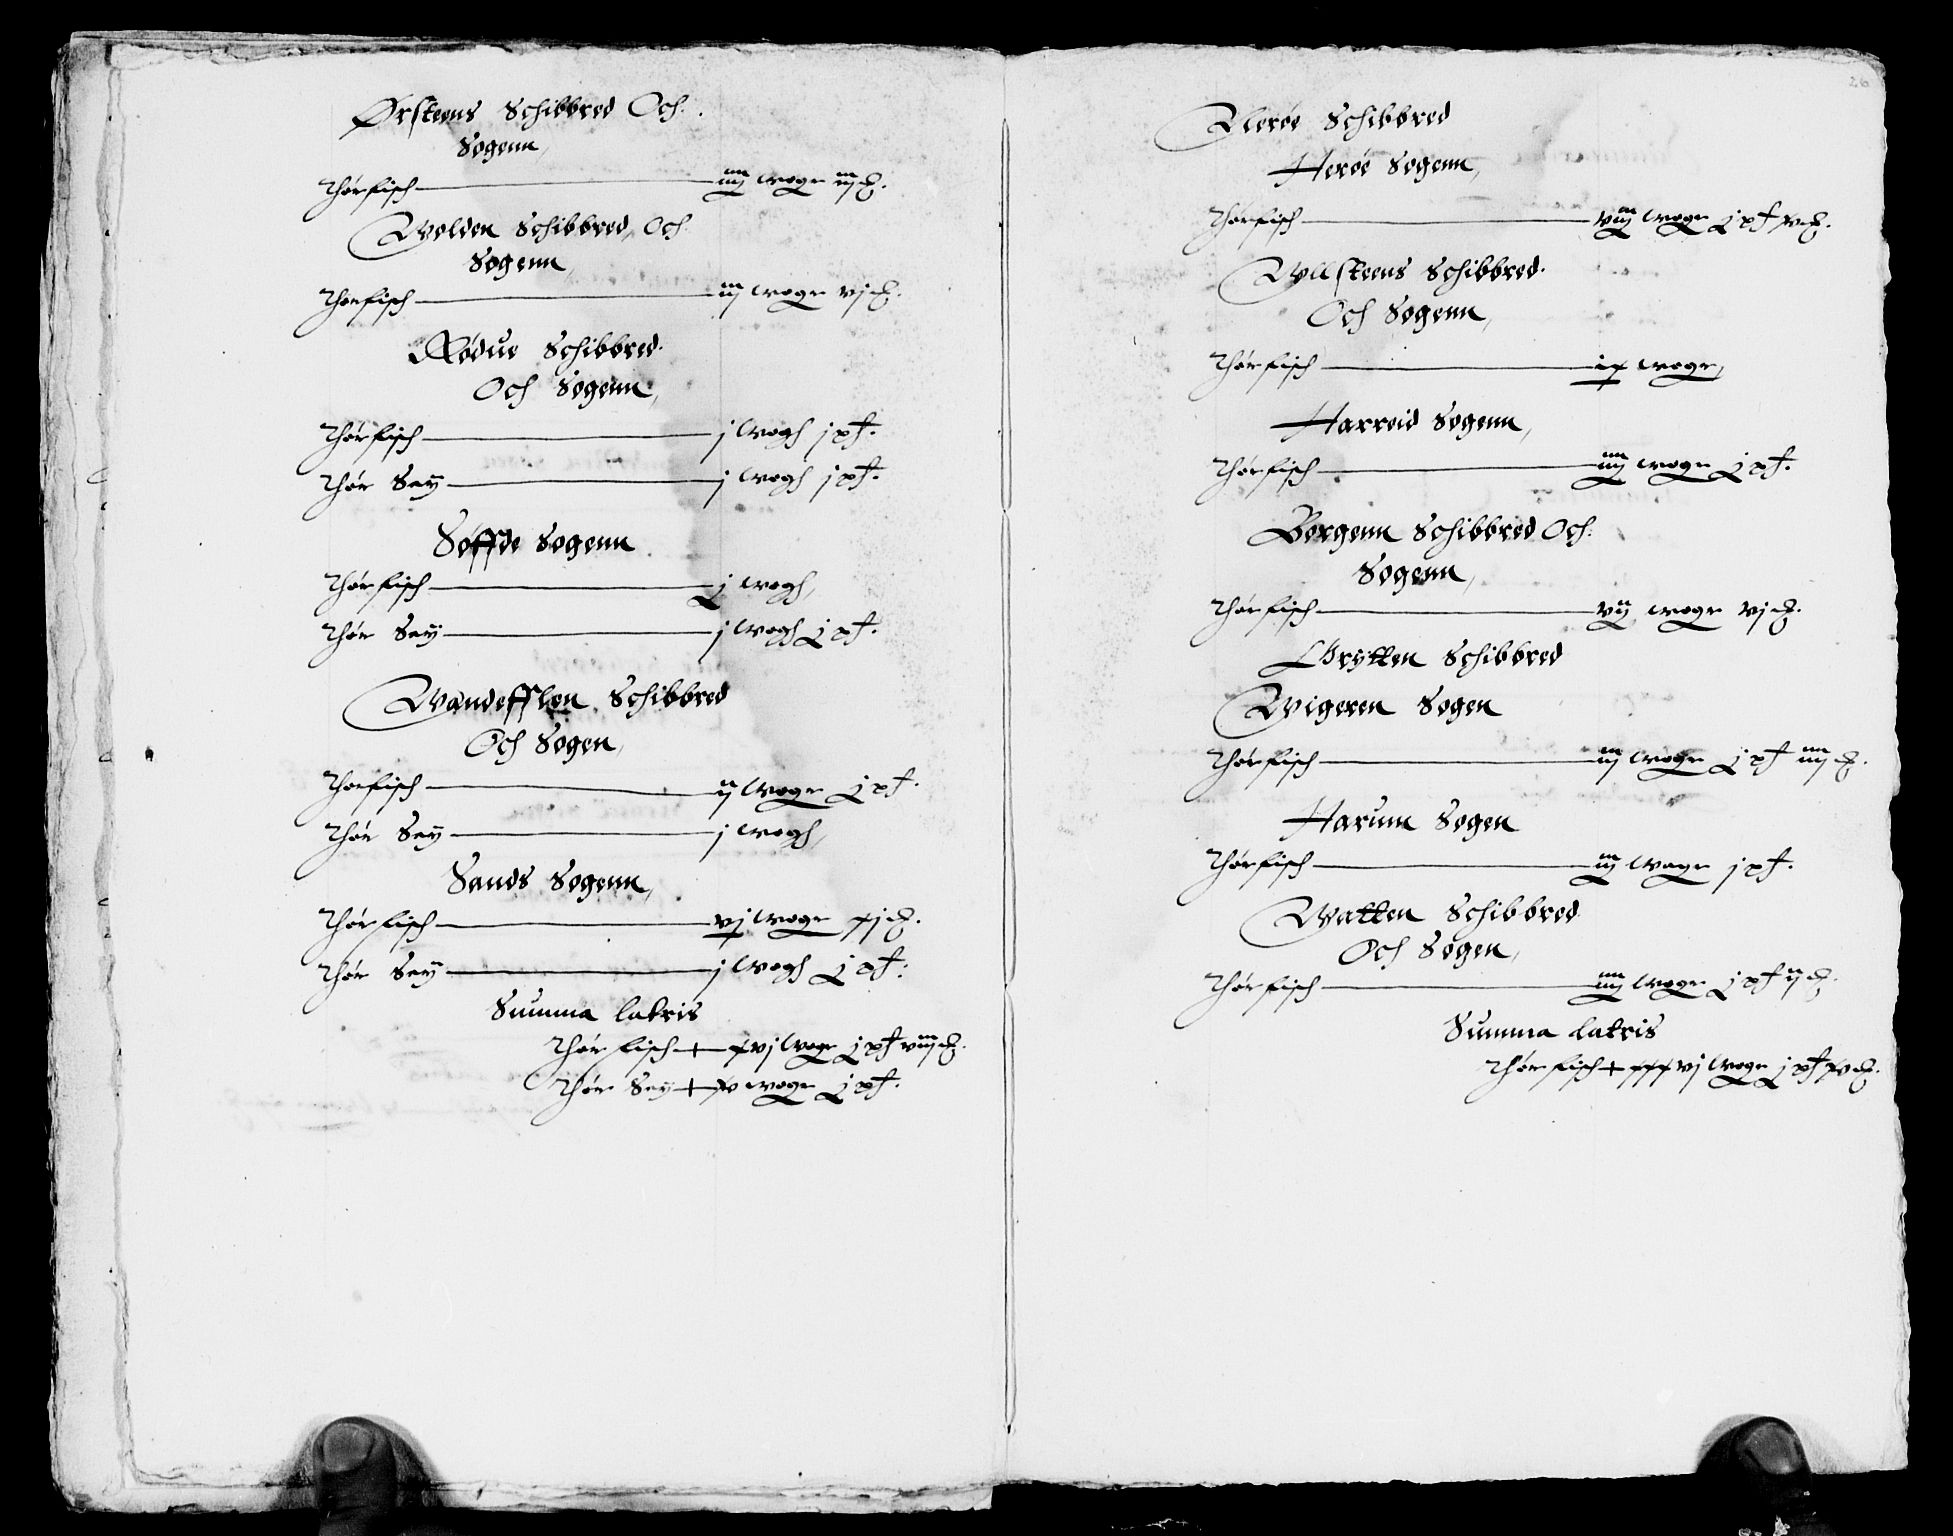 Ørsteens Schibbred Och
Sogenn
Thørfisch — iiij woger iij ℔.
Wolden Schibbred Och
Sogenn
Thørfisch — iij woger vj ℔.
Rødue Schibbred
Och Sogenn
Thørfisch — j wogh j pf.
Thør Sey — j wogh j pf.
Søffde Sogenn
Thørfisch — j wogh
Thør Sey — j wogh j pf.
Wandefflen Schibbred
Och Sogen
Thørfisch — ij woger j pf.
Thør Sey — j wogh
Sands Sogenn
Thørfisch — vj woger xj ℔.
Thør Sey — j wogh j pf.
Summa latris
Thør fisch — xvj woger j pf viij ℔.
Thør Sey — xv woger j pf.
26
Schibbred
Herøe Sogenn
Thørfisch — viij woger j pf xv ℔.
Wllsteens Schibbred
Och Sogenn
Thørfisch — ix woger
Harreid Sogenn
Thørfisch — iiij woger j pf.
Borgenn Schibbred Och
Sogenn
Thørfisch — vij woger vj ℔.
Grytten Schibbred
Wigeren Sogen
Thørfisch — iij woger j pf iiij ℔.
Harum Sogen
Thørfisch — iij woger j pf.
Watten Schibbred
Och Sogen
Thørfisch — iiij woger j pf ij ℔.
Summa latris
Thør fisch — xxxvj woger j pf xv ℔.